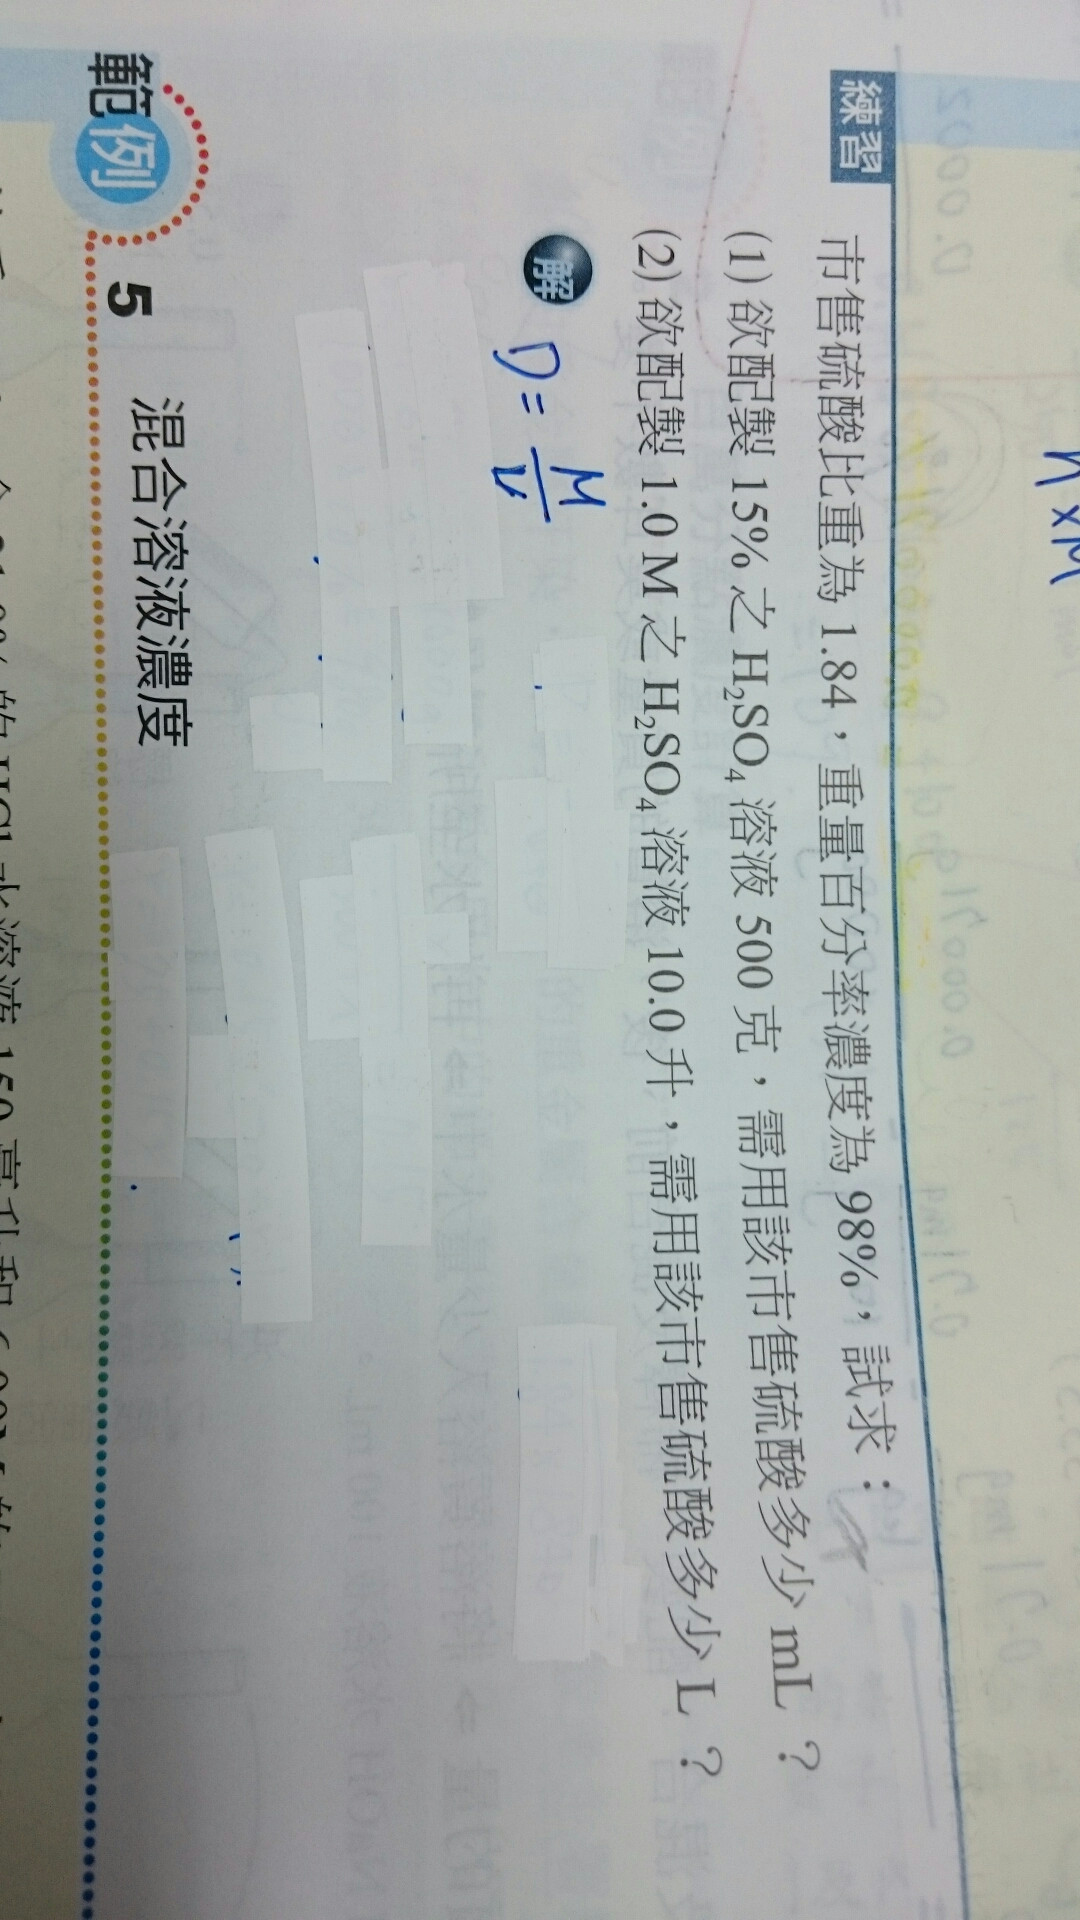 n×M
練習
市售硫酸比重為 1.84，重量百分率濃度為 98%，試求：
(1) 欲配製 15% 之 H₂SO₄ 溶液 500 克，需用該市售硫酸多少 mL ？
(2) 欲配製 1.0 M 之 H₂SO₄ 溶液 10.0 升，需用該市售硫酸多少 L ？
解
D = M/V
範例 5 混合溶液濃度